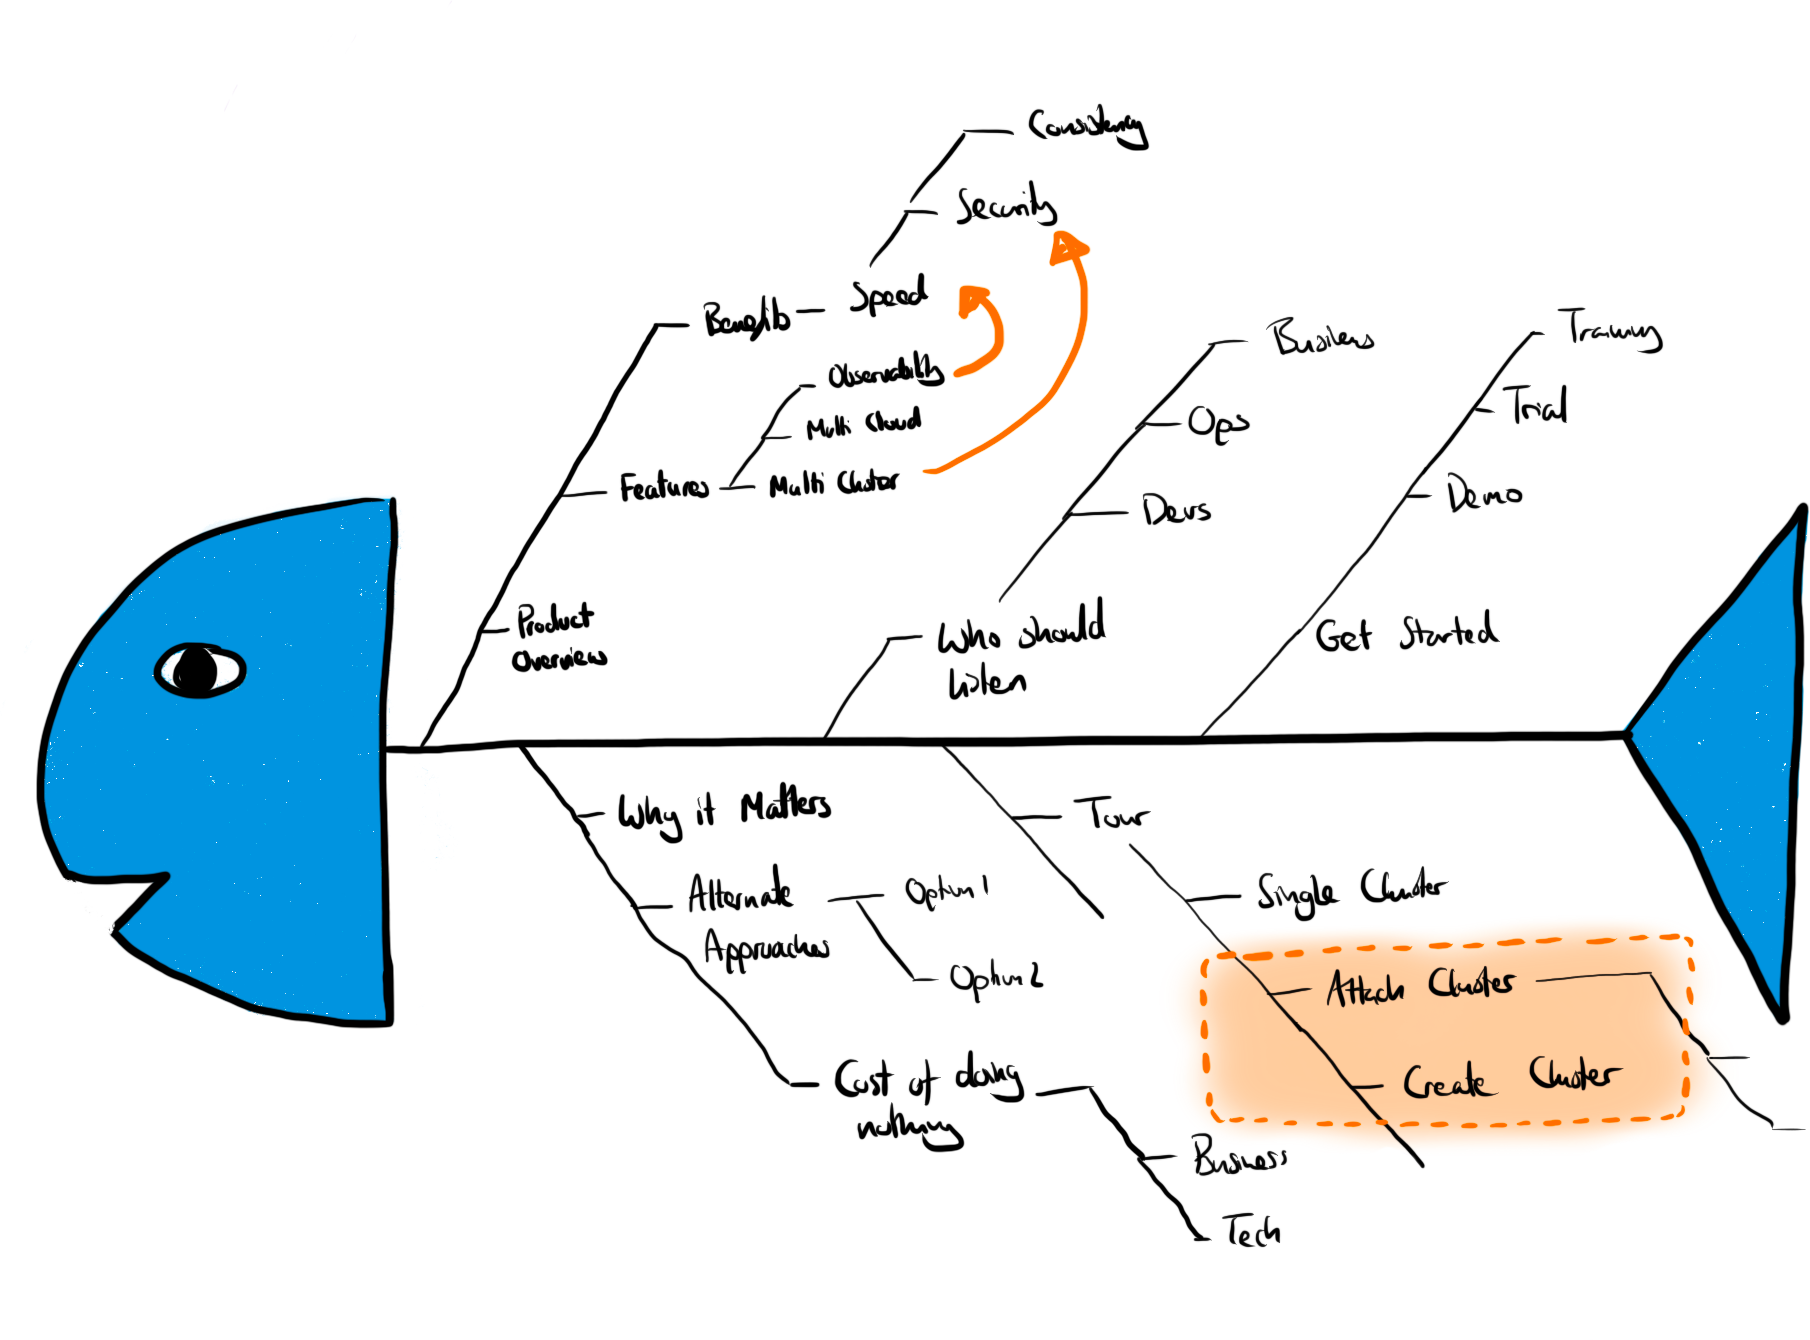 Consistency
Security
Speed
Benefits
Observability
Multi Cloud
Multi Cluster
Features
Product
Overview
Business
Ops
Devs
Who should
listen
Training
Trial
Demo
Get Started
Why it Matters
Alternate
Approaches
Option 1
Option 2
Cost of doing
nothing
Business
Tech
Tour
Single Cluster
Attach Cluster
Create Cluster